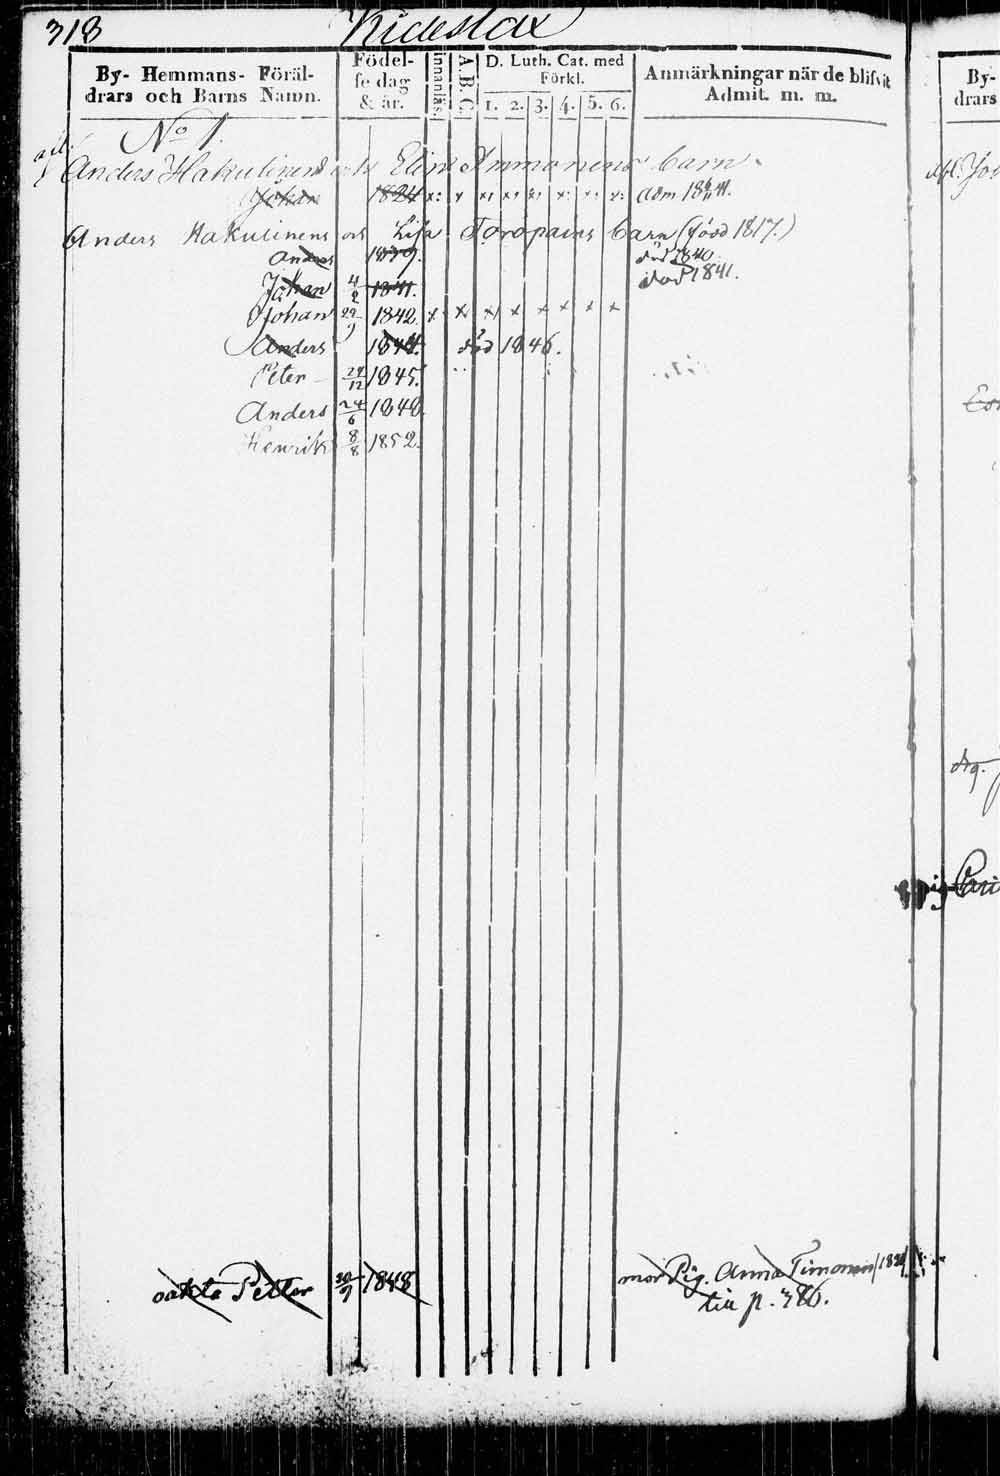 318 Kideslax
By- Hemmans- Föräl-
drars och Barns Namn.
Födel-
se dag
& år.
innanläs.
A.B.C.
D. Luth. Cat. med
Förkl.
1. 2. 3. 4. 5. 6.
Anmärkningar när de blifvit
Admit. m. m.
By-
drars
No 1.
Anders Hakulinens och Elin Immonens barn.
Johan 1824 x x x x x x x x adm 18 41.
Anders Hakulinens och Lisa Toropains barn (född 1817.)
Anders 1839. död 1840
Johan 4/2 1841. död 1841.
Johan 29/9 1842. x x x x x x x x
Anders 1844. död 1846.
Peter 24/12 1845.
Anders 24/6 1848.
Henrik 8/8 1852.
oäkta Petter 30/9 1848 mor Pig. Anna Timonen
till p. 386.